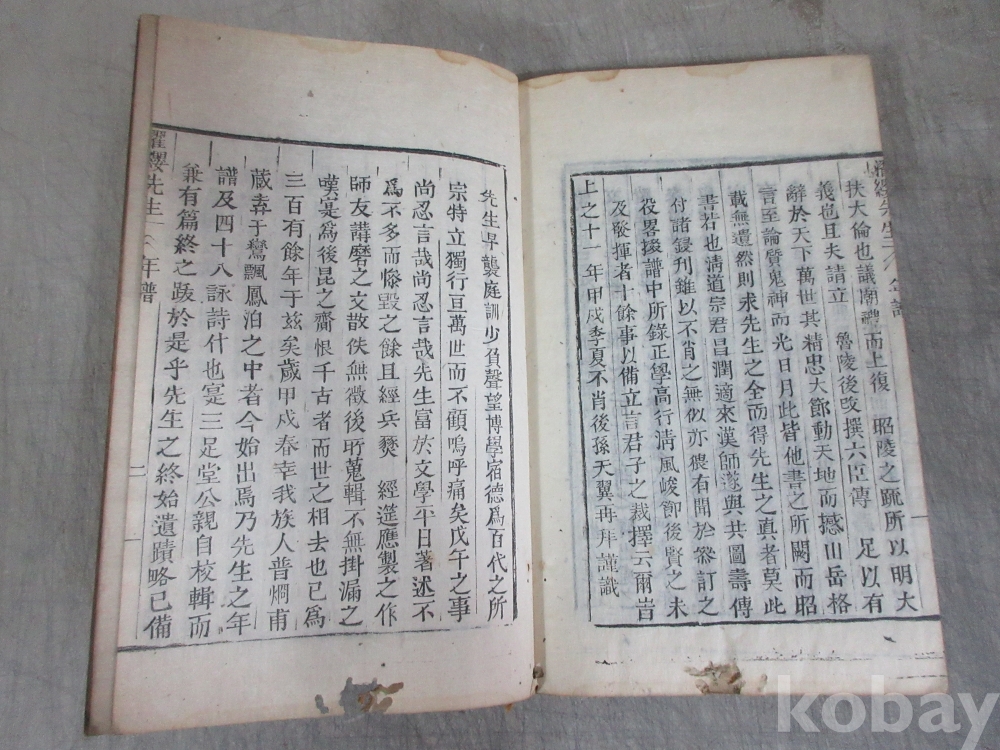 扶大倫也議廟禮而上復 昭陵之䟽所以明大
義也且夫請立 魯陵後改撰六臣傳 足以有
辭於天下萬世其精忠大節動天地而撼山岳格
言至論質鬼神而光日月此皆他書之所闕而昭
載無遺然則求先生之全而得先生之真者莫此
書若也淸道宗君昌潤適來漢師遂與共圖壽傳
付諸錄刊雖以不肖之無似亦猥有聞於叅訂之
役畧掇譜中所錄正學高行淸風峻節後賢之未
及發揮者十餘事以備立言君子之裁擇云爾旹
上之十一年甲戌季夏不肖後孫天翼再拜謹識
先生早襲庭訓少負聲望博學宿德爲百代之所
宗特立獨行亘萬世而不顧嗚呼痛矣戊午之事
尚忍言哉尚忍言哉先生富於文學平日著述不
爲不多而慘毀之餘且經兵燹 經筵應製之作
師友講磨之文散佚無徵後所蒐輯不無掛漏之
嘆寔爲後昆之齎恨千古者而世之相去也已爲
三百有餘年于玆矣歲甲戌春幸我族人普烱甫
蔵弆于鸞飄鳳泊之中者今始出焉乃先生之年
譜及四十八詠詩什也寔三足堂公親自校輯而
兼有篇終之跋於是乎先生之終始遺蹟略已備
濯纓先生 年譜 二